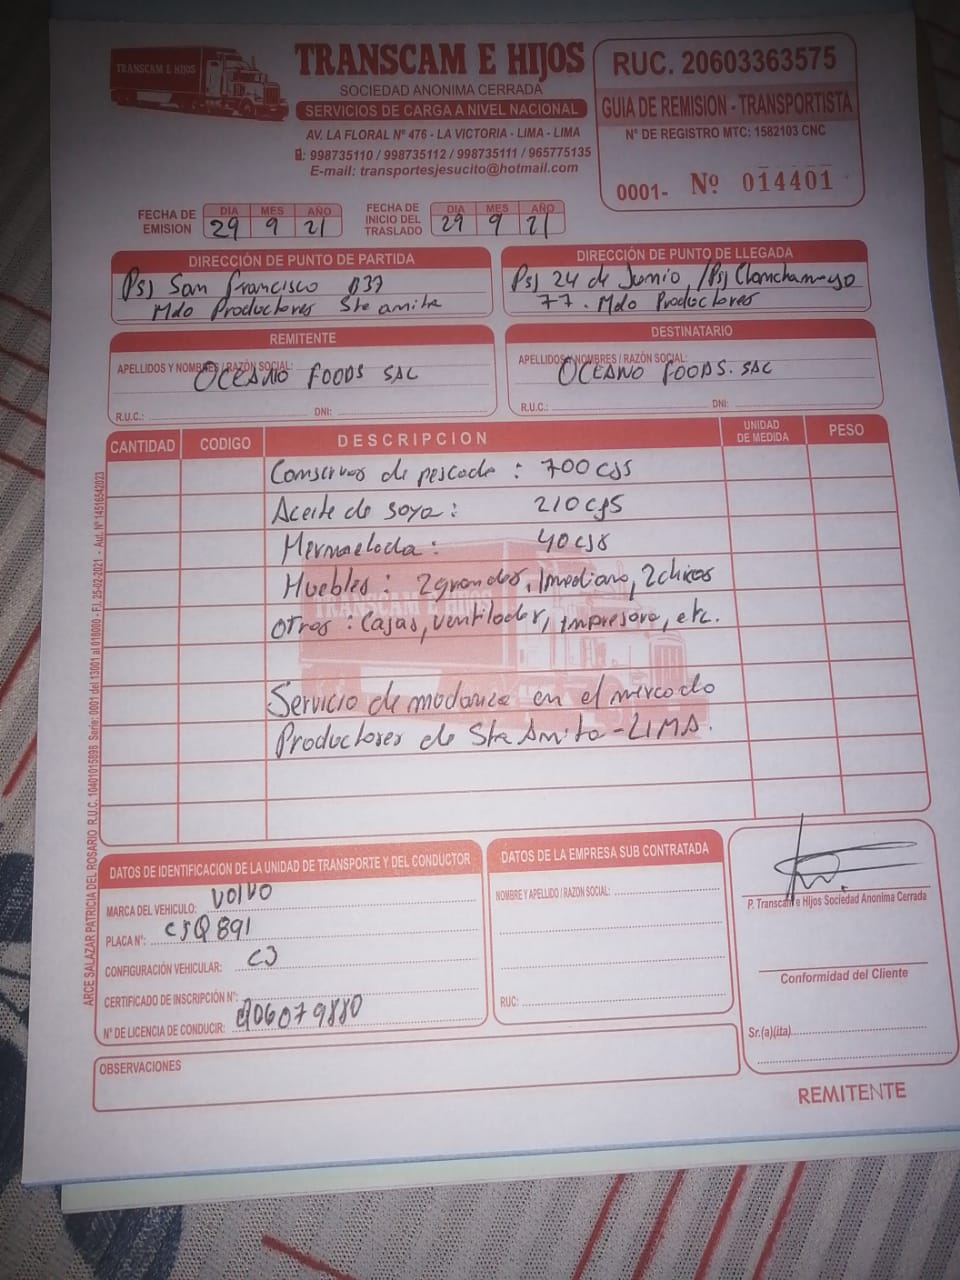 TRANSCAM E HIJOS
TRANSCAM E HIJOS
SOCIEDAD ANONIMA CERRADA
SERVICIOS DE CARGA A NIVEL NACIONAL
AV. LA FLORAL Nº 476 - LA VICTORIA - LIMA - LIMA
: 998735110 / 998735112 / 998735111 / 965775135
E-mail: transportesjesucito@hotmail.com
RUC. 20603363575
GUIA DE REMISION - TRANSPORTISTA
N° DE REGISTRO MTC: 1582103 CNC
0001- Nº 014401
FECHA DE EMISION DIA MES AÑO 29 9 21
FECHA DE INICIO DEL TRASLADO DIA MES AÑO 29 9 21
DIRECCIÓN DE PUNTO DE PARTIDA
Psj San Francisco B37
Mdo Productores Sta anita
DIRECCIÓN DE PUNTO DE LLEGADA
Psj 24 de Junio / Psj Chanchamayo
77. Mdo Productores
REMITENTE
APELLIDOS Y NOMBRES / RAZÓN SOCIAL: OCEANO FOODS SAC
R.U.C.: DNI:
DESTINATARIO
APELLIDOS Y NOMBRES / RAZÓN SOCIAL: OCEANO FOODS. SAC
R.U.C.: DNI:
CANTIDAD CODIGO DESCRIPCION UNIDAD DE MEDIDA PESO
Conservas de pescado : 700 cjs
Aceite de soya : 210 cjs
Mermelada : 40 cjs
Huebles : 2 grandes, 1 mediano, 2 chicos
Otros : Cajas, ventilador, impresora, etc.
TRANSCAM E HIJOS
Servicio de mudanza en el mercado
Productores de Sta Anita - LIMA.
ARCE SALAZAR PATRICIA DEL ROSARIO R.U.C. 10401015898 Serie: 0001 del 13001 al 018000 - F.I. 25-02-2021 - Aut. Nº 14516542023
DATOS DE IDENTIFICACION DE LA UNIDAD DE TRANSPORTE Y DEL CONDUCTOR
MARCA DEL VEHICULO: VOLVO
PLACA Nº: C5Q 891
CONFIGURACIÓN VEHICULAR: C3
CERTIFICADO DE INSCRIPCIÓN Nº:
Nº DE LICENCIA DE CONDUCIR: Q06079880
DATOS DE LA EMPRESA SUB CONTRATADA
NOMBRE Y APELLIDO / RAZON SOCIAL:
RUC:
P. Transcam e Hijos Sociedad Anonima Cerrada
Conformidad del Cliente
Sr.(a)(ita)
OBSERVACIONES
REMITENTE